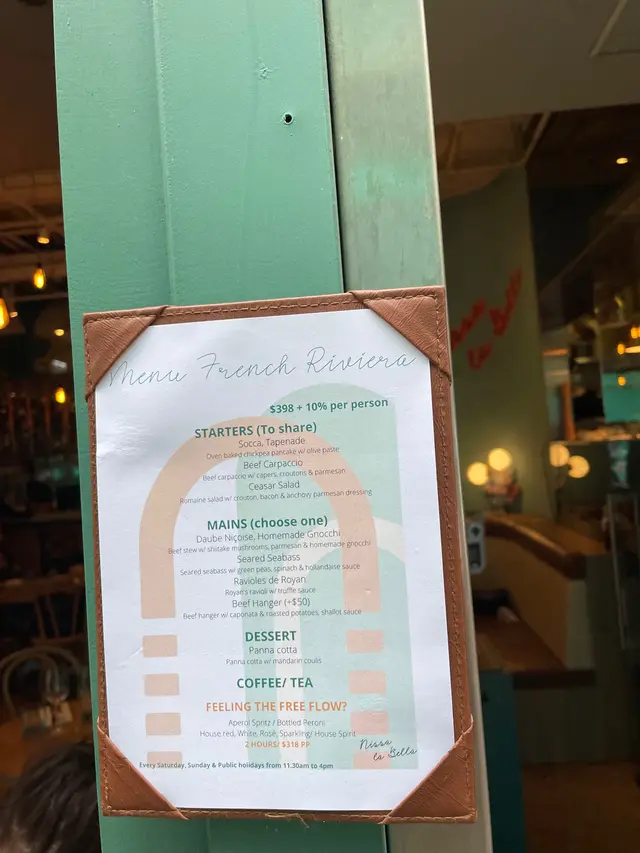 Menu French Riviera
$398 + 10% per person
STARTERS (To share)
Socca, Tapenade
Oven baked chickpea pancake w/ olive paste
Beef Carpaccio
Beef carpaccio w/ capers, croutons & parmesan
Ceasar Salad
Romaine salad w/ crouton, bacon & anchovy parmesan dressing
MAINS (choose one)
Daube Niçoise, Homemade Gnocchi
Beef stew w/ shiitake mushrooms, parmesan & homemade gnocchi
Seared Seabass
Seared seabass w/ green peas, spinach & hollandaise sauce
Ravioles de Royan
Royan's ravioli w/ truffle sauce
Beef Hanger (+$50)
Beef hanger w/ caponata & roasted potatoes, shallot sauce
DESSERT
Panna cotta
Panna cotta w/ mandarin coulis
COFFEE/ TEA
FEELING THE FREE FLOW?
Aperol Spritz / Bottled Peroni
House red, White, Rosé, Sparkling/ House Spirit
2 HOURS/ $318 PP
Nissa
la Bella
Every Saturday, Sunday & Public holidays from 11.30am to 4pm
la Bella